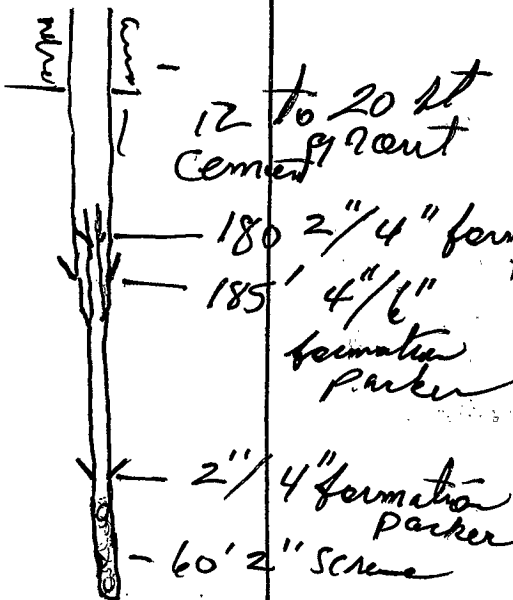 12 to 20 ft
Cement grout
180 2"/4" form
185' 4"/6"
formation
Packer
2"/4" formation
packer
60' 2" Screen